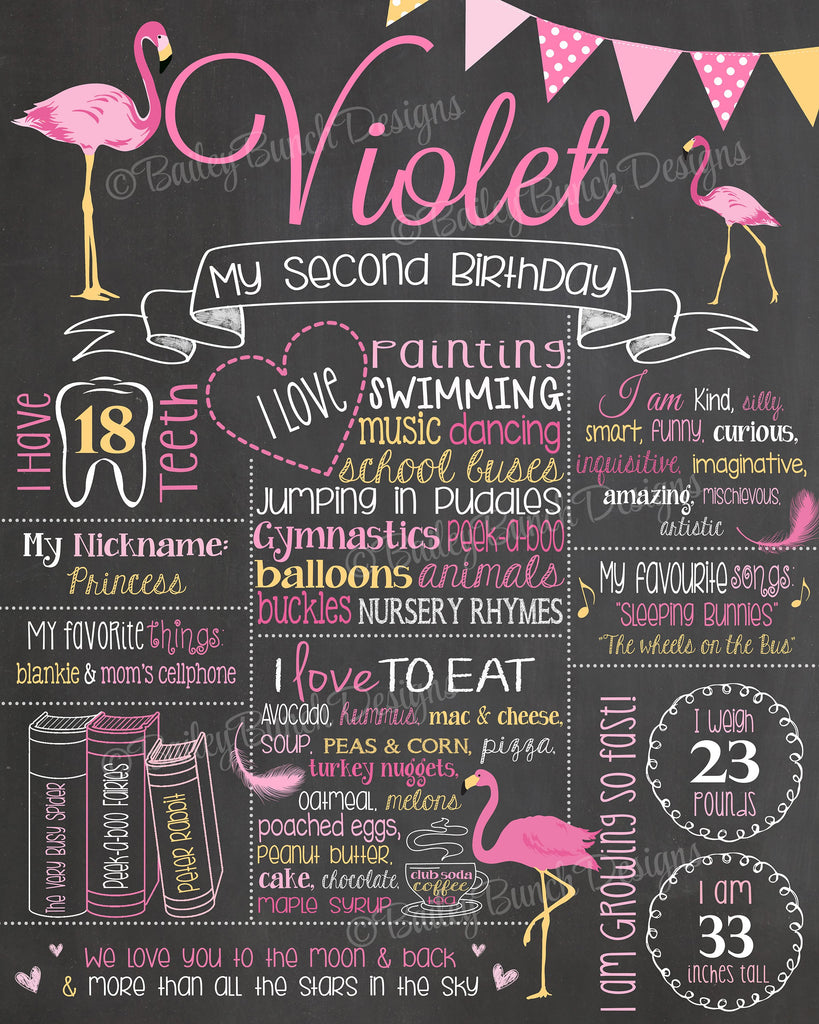 Violet
©BaileyBunchDesigns
©BaileyBunchDesigns
My Second Birthday
I Have
18
Teeth
I LOVE
Painting
SWIMMING
music dancing
school buses
Jumping in Puddles
Gymnastics Peek-a-boo
balloons animals
buckles NURSERY RHYMES
I am Kind, silly,
smart, funny, curious,
inquisitive, imaginative,
amazing, mischievous,
artistic
©BaileyBunchDesigns
My Nickname:
Princess
My favorite things:
blankie & mom's cellphone
My favourite songs:
"Sleeping Bunnies"
"The wheels on the Bus"
©BaileyBunchDesigns
The Very Busy Spider
Peek-a-boo Fairies
Peter Rabbit
I love TO EAT
Avocado, hummus, mac & cheese,
soup, PEAS & CORN, pizza,
turkey nuggets,
oatmeal, melons
poached eggs,
Peanut butter,
cake, chocolate,
maple syrup
club soda
coffee
tea
I am GROWING so fast!
I weigh
23
pounds
I am
33
inches tall
©BaileyBunchDesigns
We love you to the moon & back
& more than all the stars in the sky